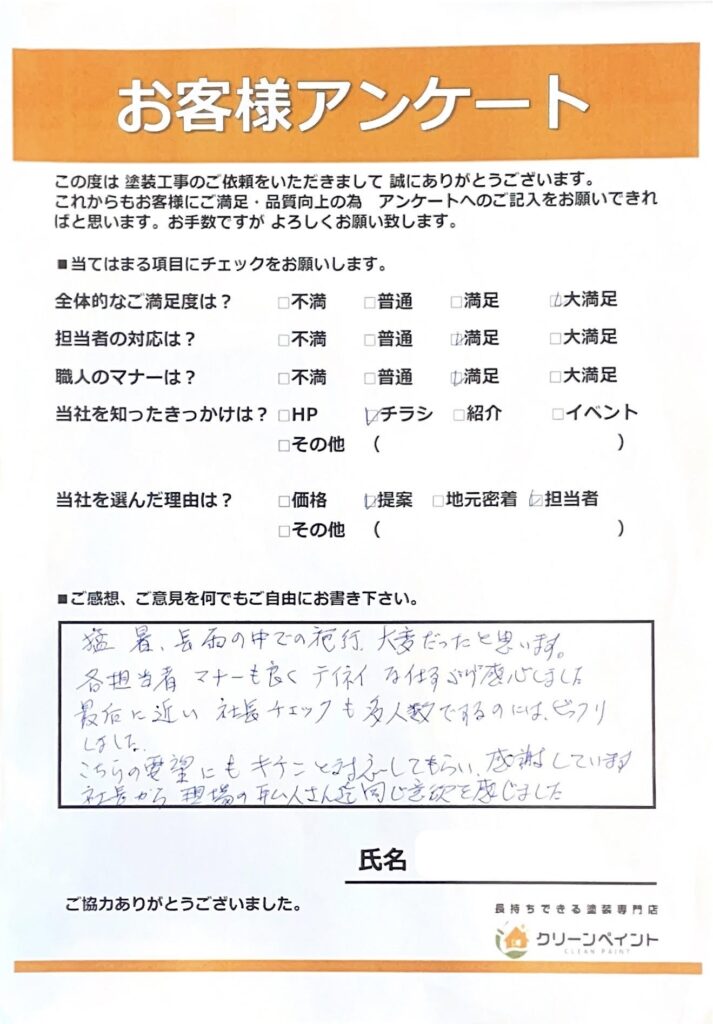 お客様アンケート
この度は 塗装工事のご依頼をいただきまして 誠にありがとうございます。
これからもお客様にご満足・品質向上の為　アンケートへのご記入をお願いできれ
ばと思います。お手数ですが よろしくお願い致します。
■当てはまる項目にチェックをお願いします。
全体的なご満足度は？ □不満 □普通 □満足 ☑大満足
担当者の対応は？ □不満 □普通 ☑満足 □大満足
職人のマナーは？ □不満 □普通 ☑満足 □大満足
当社を知ったきっかけは？ □HP ☑チラシ □紹介 □イベント
□その他 （ ）
当社を選んだ理由は？ □価格 ☑提案 □地元密着 ☑担当者
□その他 （ ）
■ご感想、ご意見を何でもご自由にお書き下さい。
猛暑、長雨の中での施行、大変だったと思います。
各担当者 マナーも良く テイネイな仕事ぶり感心しました
最后に近い 社長チェックも多人数でするのには、ビックリ
しました。
こちらの要望にもキチンと対応してもらい、感謝しています
社長から 現場の職人さん迄同じ意欲を感じました
氏名
ご協力ありがとうございました。
長持ちできる塗装専門店
クリーンペイント
CLEAN PAINT